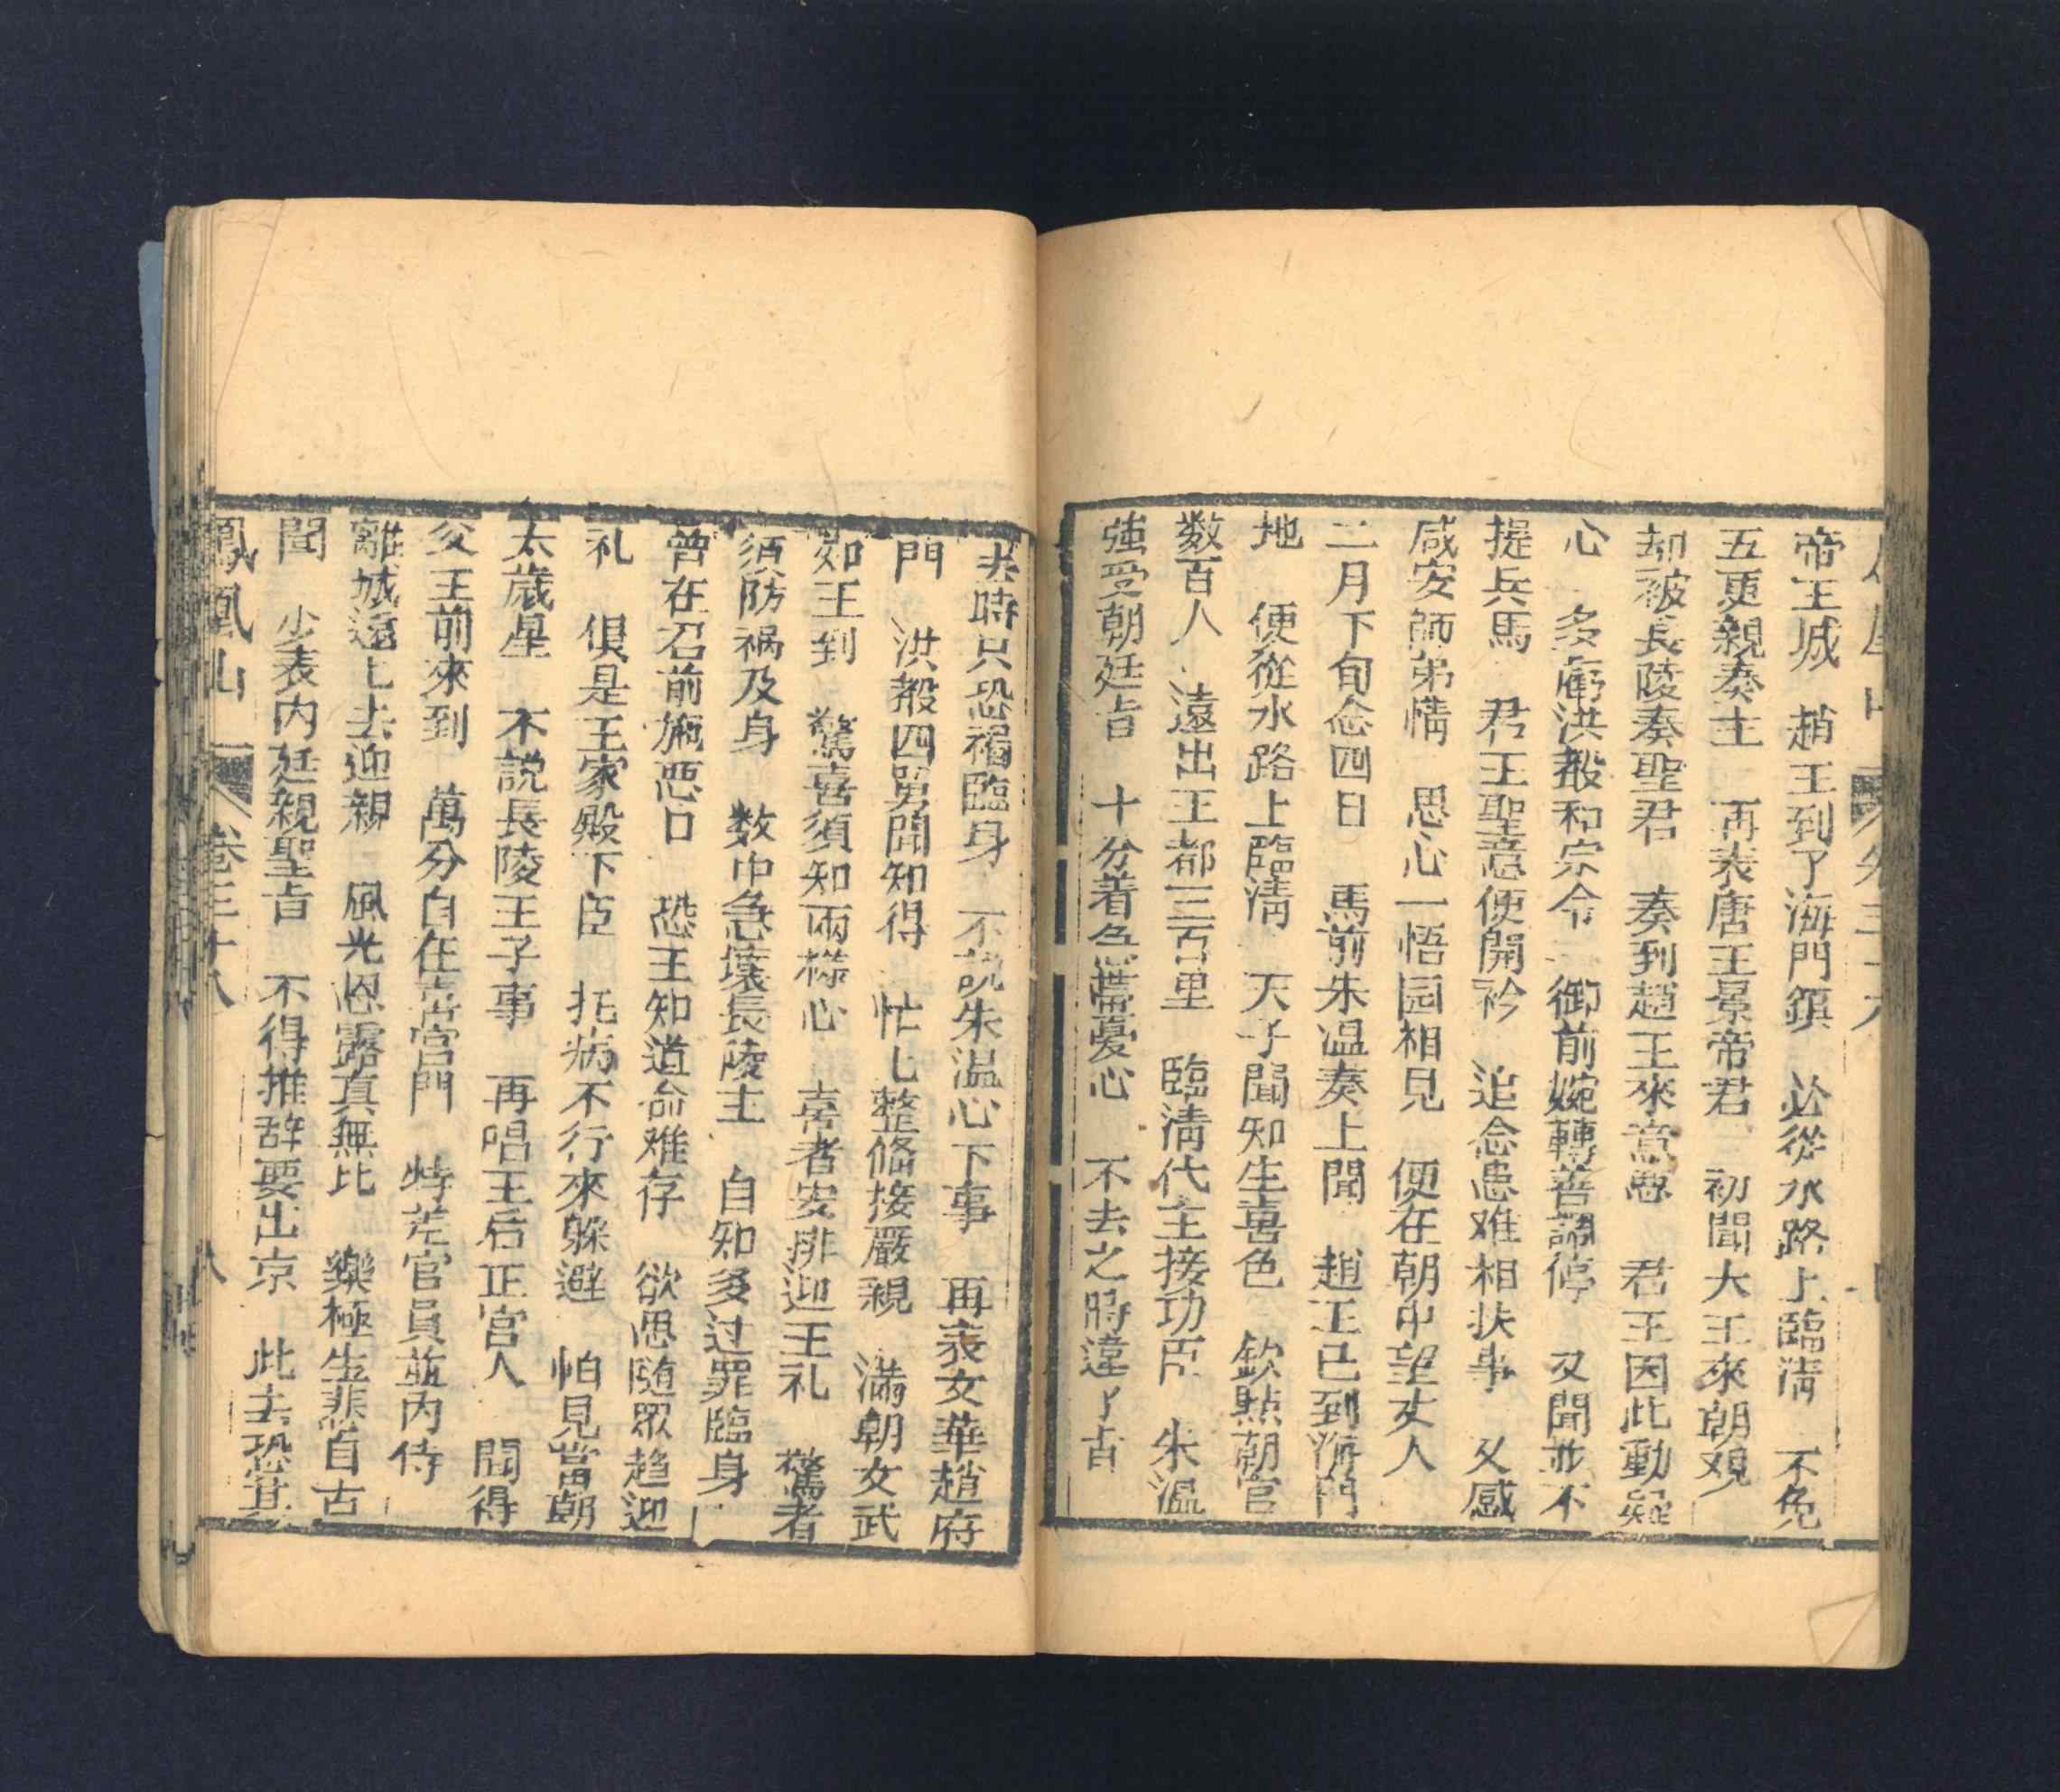 帝王城　趙王到了海門鎮　必從水路上臨清　不免
五更親奏主　再表唐王景帝君　初聞大王來朝覌
却被長陵奏聖君　奏到趙王來意惡　君王因此動疑
心　多虧洪殽和宗令　御前婉轉善調停　又聞並不
提兵馬　君王聖意便開衿　追念患难相扶事　又感
咸安師弟情　思心一悟园相見　便在朝中望丈人
二月下旬念四日　馬前朱温奏上聞　趙王已到海門
地　便從水路上臨清　天子聞知生喜色　欽點朝官
数百人　遠出王都三百里　臨清代主接功臣　朱温
強受朝廷旨　十分着急滿憂心　不去之時違了旨
去時只恐禍臨身　不說朱温心下事　再表女華趙府
門　洪殽四舅聞知得　忙匕整偹接嚴親　滿朝文武
如王到　驚喜須知兩樣心　喜者安排迎王礼　驚者
須防禍及身　数中急壞長陵主　自知多过罪臨身
曾在君前施惡口　恐王知道命难存　欲思随眾趋迎
礼　俱是王家殿下臣　托病不行來躲避　怕見當朝
太歲星　不說長陵王子事　再唱王后正宮人　聞得
父王前來到　萬分自在喜宮門　特差官員並內侍
離城遠匕去迎親　風光恩露真無比　樂極生悲自古
聞　少表內廷親聖旨　不得推辞要出京　此去恐
鳳凰山　卷三十八　八